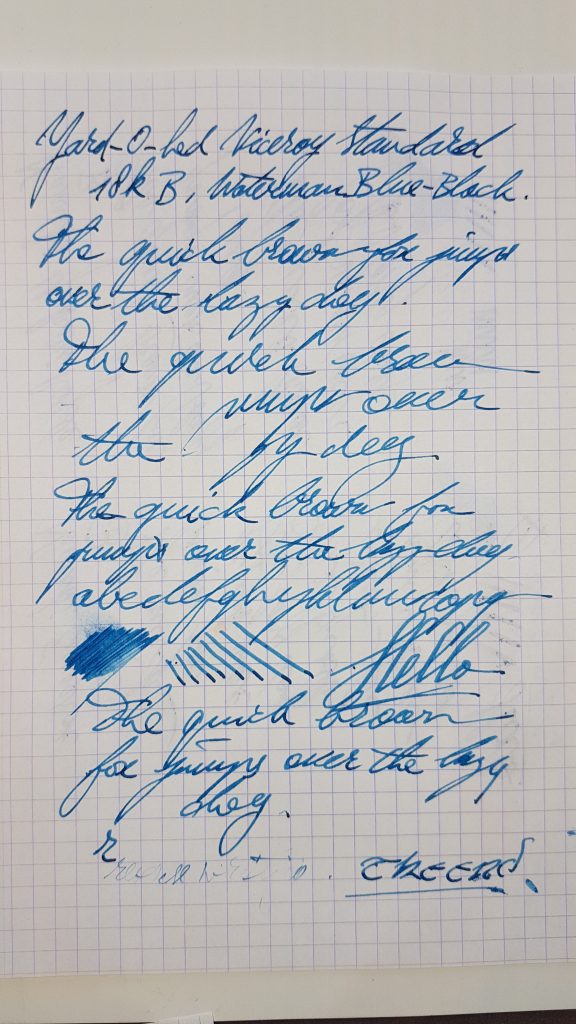 Yard-O-Led Viceroy Standard
18k B, Waterman Blue-Black.
The quick brown fox jumps
over the lazy dog.
The quick brown
jumps over
the dog
The quick brown fox
jumps over the lazy dog
abcdefghijklmnopq
Hello
The quick brown
fox jumps over the lazy
dog.
r